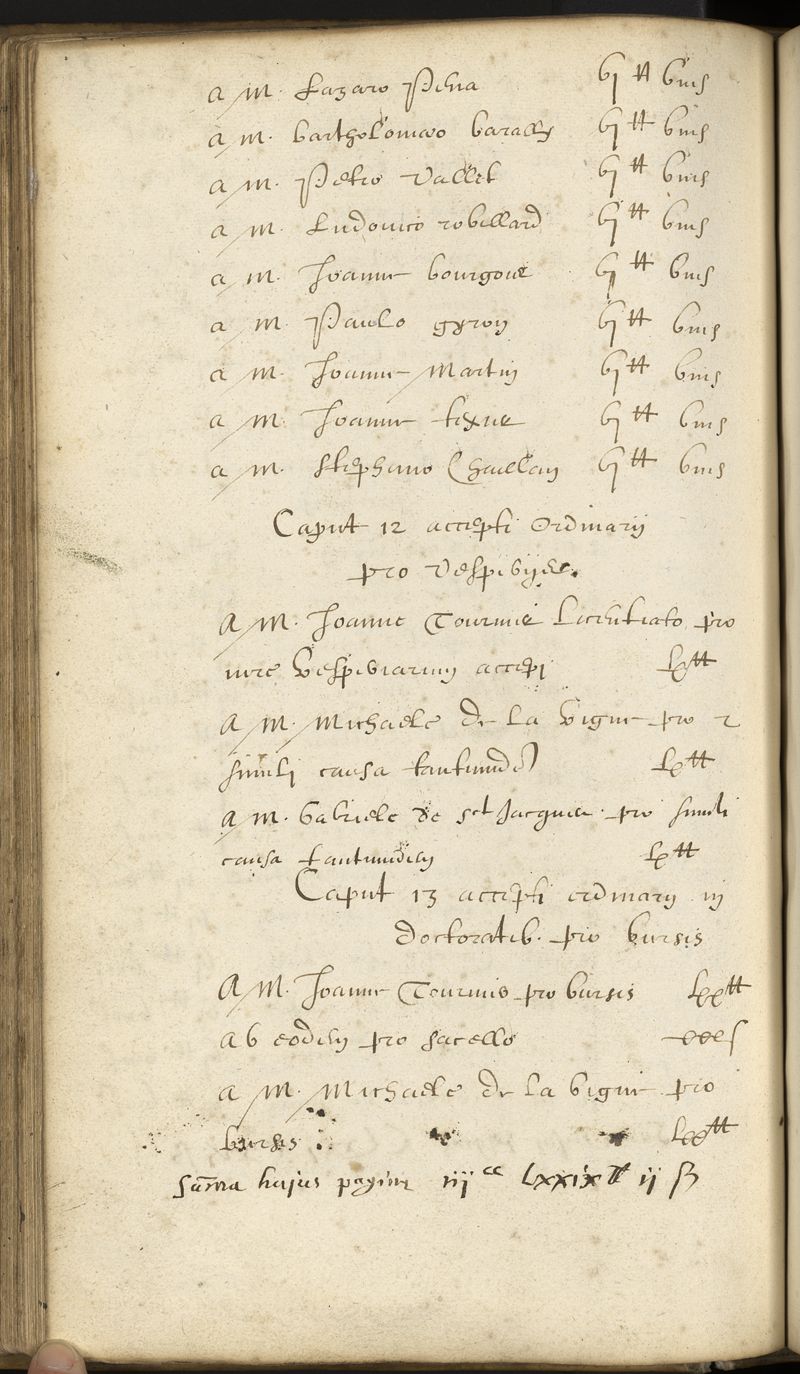 a M. Lazaro Pena vj ₶ viij s
a M. bartholomaeo baralis vj ₶ viij s
a M. Petro Vallet vj ₶ viij s
a M. Ludovico robillard vj ₶ viij s
a M. Joanne bourgoue vj ₶ viij s
a M. Paulo vj ₶ viij s
a M. Joanne Martin vj ₶ viij s
a M. Joanne vj ₶ viij s
a M. Stephano vj ₶ viij s
Caput 12 accepti Ordinarij
pro Vesperijs.
A M. Joanne Tournie Licentiato pro
iure Vesperiarum accepi lx ₶
A M. Michaele de la Vigne pro
simili causa tantundem lx ₶
A M. Gabriele de sct Jacques pro simili
causa tantundem lx ₶
Caput 13 accepti ordinarij in
doctoratib. pro bursis
A M. Joanne Tournie pro bursis lxx ₶
Ab eodem pro sacello xxx s
A M. Michaele de la Vigne pro
bursis lxx ₶
Summa hujus paginæ iiij cc lxxix ₶ ij ß